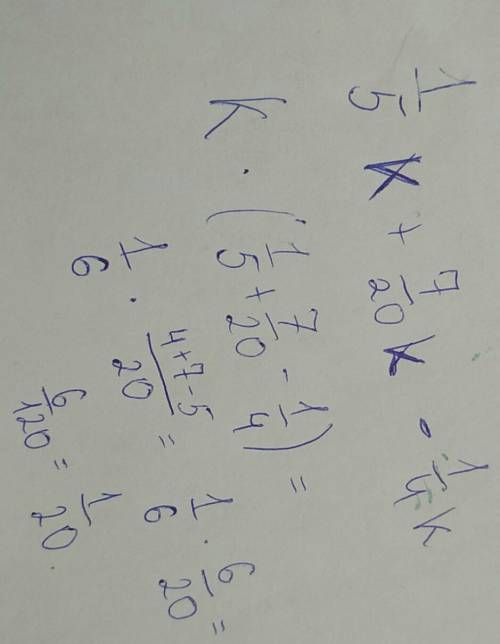 1/5 k + 7/20 k - 1/4 k
k · (1/5 + 7/20 - 1/4) =
1/6 · (4+7-5)/20 = 1/6 · 6/20 =
6/120 = 1/20.